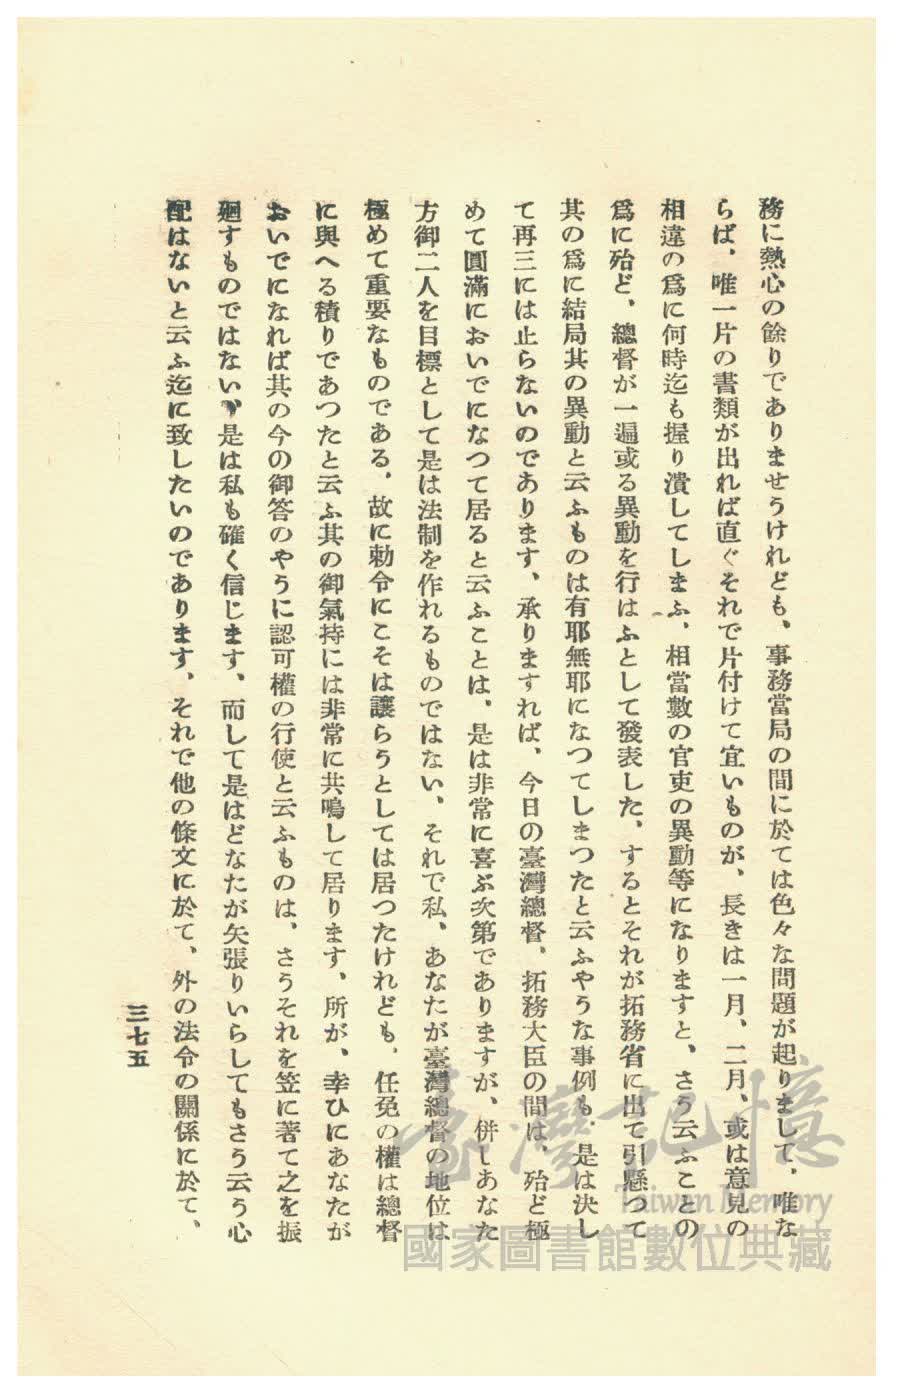 務に熱心の餘りでありませうけれども、事務當局の間に於ては色々な問題が起りまして、唯な
らば、唯一片の書類が出れば直ぐそれで片付けて宜いものが、長きは一月、二月、或は意見の
相違の爲に何時迄も握り潰してしまふ、相當數の官吏の異動等になりますと、さう云ふことの
爲に殆ど、總督が一遍或る異動を行はふとして發表した、するとそれが拓務省に出て引懸つて
其の爲に結局其の異動と云ふものは有耶無耶になつてしまつたと云ふやうな事例も、是は決し
て再三には止らないのであります、承りますれば、今日の臺灣總督、拓務大臣の間は、殆ど極
めて圓滿においでになつて居ると云ふことは、是は非常に喜ぶ次第でありますが、併しあなた
方御二人を目標として是は法制を作れるものではない、それで私、あなたが臺灣總督の地位は
極めて重要なものである、故に勅令にこそは讓らうとしては居つたけれども、任免の權は總督
に與へる積りであつたと云ふ其の御氣持には非常に共鳴して居ります、所が、幸ひにあなたが
おいでになれば其の今の御答のやうに認可權の行使と云ふものは、さうそれを笠に著て之を振
廻すものではない、是は私も確く信じます、而して是はどなたが矢張りいらしてもさう云う心
配はないと云ふ迄に致したいのであります、それで他の條文に於て、外の法令の關係に於て、
三七五
臺灣記憶
Taiwan Memory
國家圖書館數位典藏